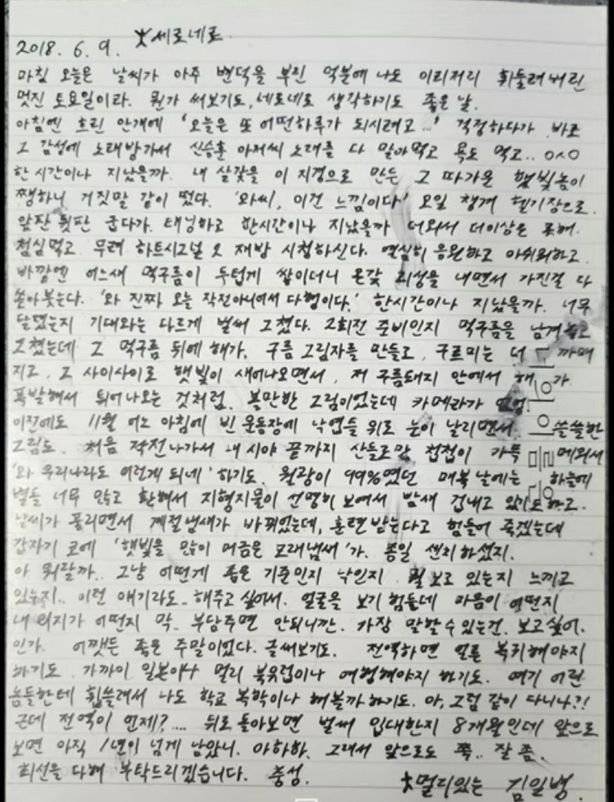 2018. 6. 9. 大세로네로
마침 오늘은 날씨가 아주 변덕을 부린 덕분에 나도 이리저리 휘둘려버린
멋진 토요일이라. 뭔가 써보기도, 네로네로 생각하기도 좋은 날.
아침엔 흐린 안개에 '오늘은 또 어떤하루가 되시려고...' 걱정하다가 바로
그 감성에 노래방가서 신승훈 아저씨 노래를 다 말아먹고 욕도 먹고.. ㅇㅅㅇ
한시간이나 지났을까. 내 살갗을 이 지경으로 만든 그 따가운 햇빛놈이
쨍하니 거짓말 같이 떴다. '와씨, 이건 느낌이다!' 오일 챙겨 헬기장으로.
앞판 뒷판 굽다가. 태닝하고 한시간이나 지났을까 더워서 더이상은 못해.
점심먹고 무려 하트시그널2 재방 시청하신다. 열심히 응원하고 아쉬워하고.
바깥엔 어느새 먹구름이 두텁게 쌓이더니 온갖 괴성을 내면서 가진걸 다
쏟아붓는다. '와 진짜 오늘 작전아니어서 다행이다.' 한시간이나 지났을까. 너무
달랬는지 기대와는 다르게 벌써 그쳤다. 2회전 준비인지 먹구름을 남겨놓고
그쳤는데 그 먹구름 뒤에 해가. 구름 그림자를 만들고, 구르미는 더 까매
지고, 그 사이사이로 햇빛이 새어나오면서, 저 구름돼지 안에서 해가
폭발해서 튀어나오는 것처럼. 볼만한 그림이었는데 카메라가 없었
이전에도 11월 어느 아침에 빈 운동장에 낙엽들 위로 눈이 날리면서 쓸쓸한
그림도. 처음 작전나가서 내 시야 끝까지 산들로만 첩첩이 가득 메워서
'와 우리나라도 이렇게 되네' 하기도. 월광이 99%였던 매복날에는 하늘에
별들 너무 많고 환해서 지형지물이 선명히 보여서 밤새 겁내고 있기도하고.
날씨가 풀리면서 계절냄새가 바뀌었는데, 훈련받는다고 힘들어 죽겠는데
갑자기 코에 '햇빛을 많이 머금은 모래냄새'가. 종일 센치하셨지.
아 뭐랄까.. 그냥 어떻게 좋은 기준인지 낙인지 뭘 보고 있는지 느끼고
있는지.. 이런 얘기라도.. 해주고 싶어서. 얼굴을 보기 힘든데 마음이 어떤지
내 의지가 어떤지 막.. 부담주면 안되니깐. 가장 말할수있는건. 보고싶어.
인가. 어쨌든 좋은 주말이었다. 글써보기도. 전역하면 얼른 복귀해야지
하기도. 가까이 일본이나 멀리 북유럽이나 여행해야지 하기도. 얘기 어린
놈들한테 휩쓸려서 나도 학교 복학이나 해볼까하기도. 아, 그럼 같이 다니나?!
근데 전역이 언제?.... 뒤로 돌아보면 벌써 입대한지 8개월인데 앞으로
보면 아직 1년이 넘게 남았니. 아하하. 그래서 앞으로도 쭉.. 잘 좀.
최선을 다해 부탁드리겠습니다. 충성.
大멀리있는 김일병